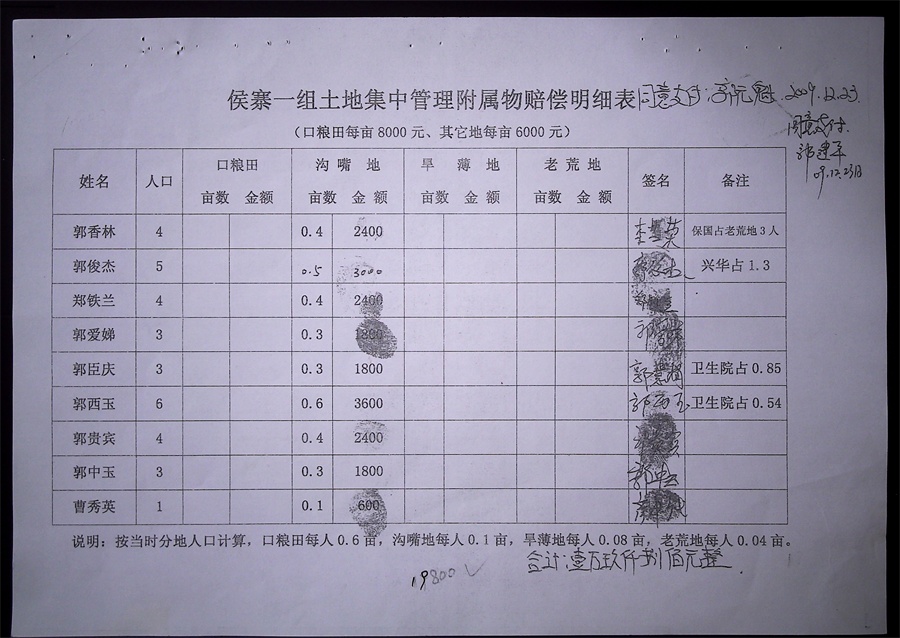 侯寨一组土地集中管理附属物赔偿明细表 同意支付 2009.12.23
（口粮田每亩8000元、其它地每亩6000元）
同意支付
郭建平
09.12.23日
姓名 人口 口粮田 沟嘴地 旱薄地 老荒地 签名 备注
亩数 金额 亩数 金额 亩数 金额 亩数 金额
郭香林 4 0.4 2400 保国占老荒地3人
郭俊杰 5 0.5 3000 兴华占1.3
郑铁兰 4 0.4 2400
郭爱娣 3 0.3 1800
郭臣庆 3 0.3 1800 卫生院占0.85
郭西玉 6 0.6 3600 郭西玉 卫生院占0.54
郭贵宾 4 0.4 2400
郭中玉 3 0.3 1800 郭中玉
曹秀英 1 0.1 600
说明：按当时分地人口计算，口粮田每人0.6亩，沟嘴地每人0.1亩，旱薄地每人0.08亩，老荒地每人0.04亩。
合计：壹万玖仟捌佰元整.
19800